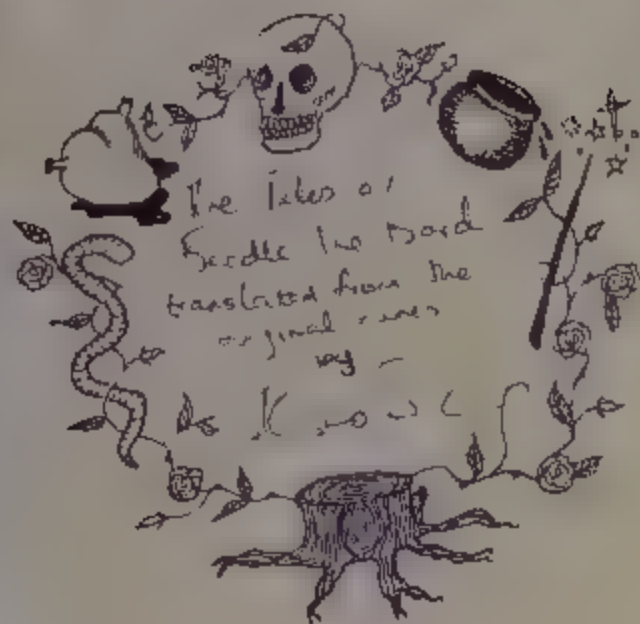 The Tales of
Beedle the Bard
translated from the
original runes
by -